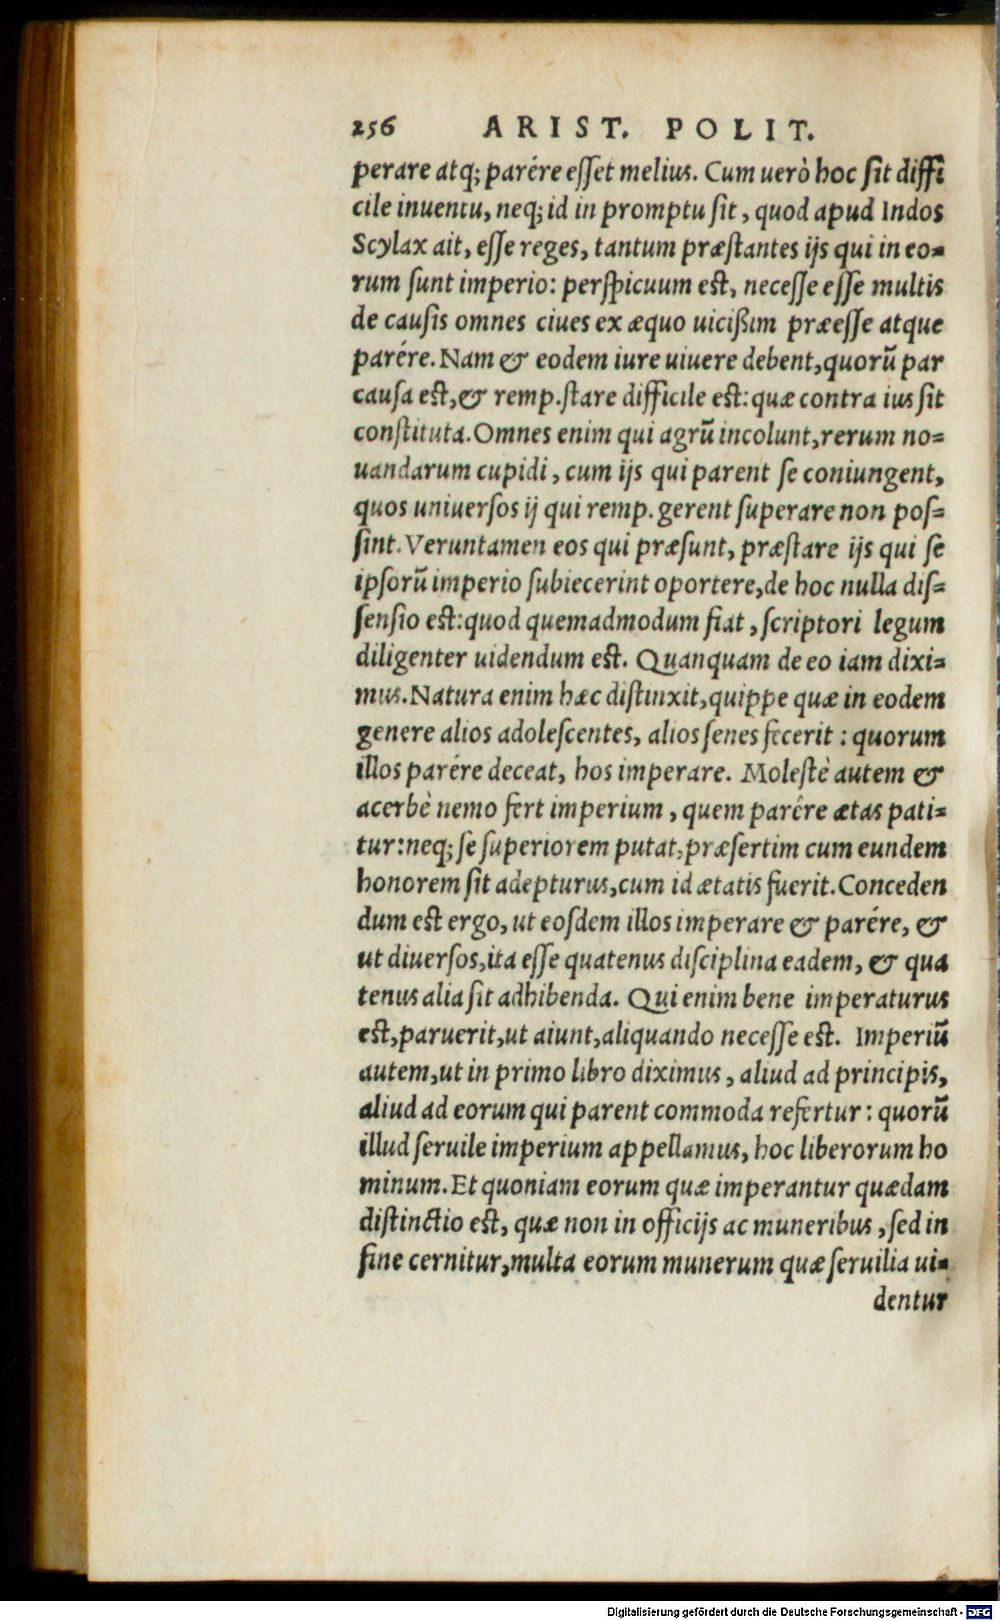 256 ARIST. POLIT.
perare atq; parére eſſet melius. Cum uerò hoc ſit diffi
cile inuentu, neq; id in promptu ſit, quod apud Indos
Scylax ait, eſſe reges, tantum præſtantes ijs qui in eo=
rum ſunt imperio: perſpicuum eſt, neceſſe eſſe multis
de cauſis omnes ciues ex æquo uicißim præeſſe atque
parére. Nam & eodem iure uiuere debent, quorũ par
cauſa eſt, & remp. ſtare difficile eſt: quæ contra ius ſit
conſtituta. Omnes enim qui agrũ incolunt, rerum no=
uandarum cupidi, cum ijs qui parent ſe coniungent,
quos uniuerſos ij qui remp. gerent ſuperare non poſ=
ſint. Veruntamen eos qui præſunt, præſtare ijs qui ſe
ipſorũ imperio ſubiecerint oportere, de hoc nulla diſ=
ſenſio eſt: quod quemadmodum fiat, ſcriptori legum
diligenter uidendum eſt. Quanquam de eo iam dixi=
mus. Natura enim hæc diſtinxit, quippe quæ in eodem
genere alios adoleſcentes, alios ſenes fecerit: quorum
illos parére deceat, hos imperare. Moleſtè autem &
acerbè nemo fert imperium, quem parére ætas pati=
tur: neq; ſe ſuperiorem putat, præſertim cum eundem
honorem ſit adepturus, cum id ætatis fuerit. Conceden
dum eſt ergo, ut eoſdem illos imperare & parére, &
ut diuerſos, ita eſſe quatenus diſciplina eadem, & qua
tenus alia ſit adhibenda. Qui enim bene imperaturus
eſt, paruerit, ut aiunt, aliquando neceſſe eſt. Imperiũ
autem, ut in primo libro diximus, aliud ad principis,
aliud ad eorum qui parent commoda refertur: quorũ
illud ſeruile imperium appellamus, hoc liberorum ho
minum. Et quoniam eorum quæ imperantur quædam
diſtinctio eſt, quæ non in officijs ac muneribus, ſed in
fine cernitur, multa eorum munerum quæ ſeruilia ui=
dentur
Digitalisierung gefördert durch die Deutsche Forschungsgemeinschaft - DFG